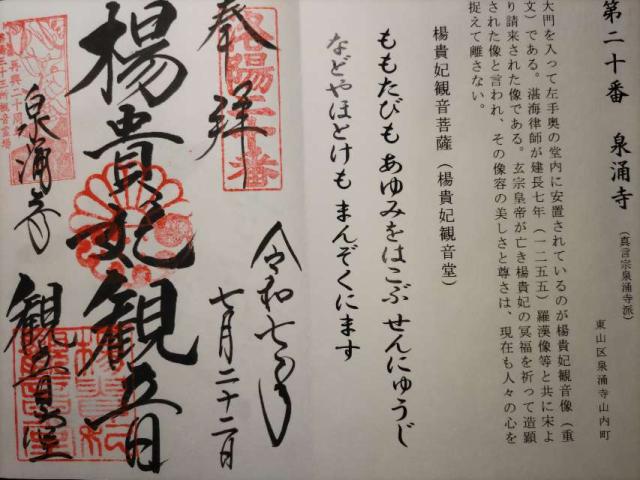 第二十番　泉涌寺（真言宗泉涌寺派）
東山区泉涌寺山内町
大門を入って左手奥の堂内に安置されているのが楊貴妃観音像（重
文）である。湛海律師が建長七年（一二五五）羅漢像等と共に宋よ
り請来された像である。玄宗皇帝が亡き楊貴妃の冥福を祈って造顕
された像と言われ、その像容の美しさと尊さは、現在も人々の心を
捉えて離さない。
楊貴妃観音菩薩（楊貴妃観音堂）
ももたびも あゆみをはこぶ せんにゅうじ
などやほとけも まんぞくにます
奉拝
洛陽二十番
令和七年
七月二十二日
楊貴妃観音
再興二十周年
洛陽三十三所観音霊場
泉涌寺
観音堂